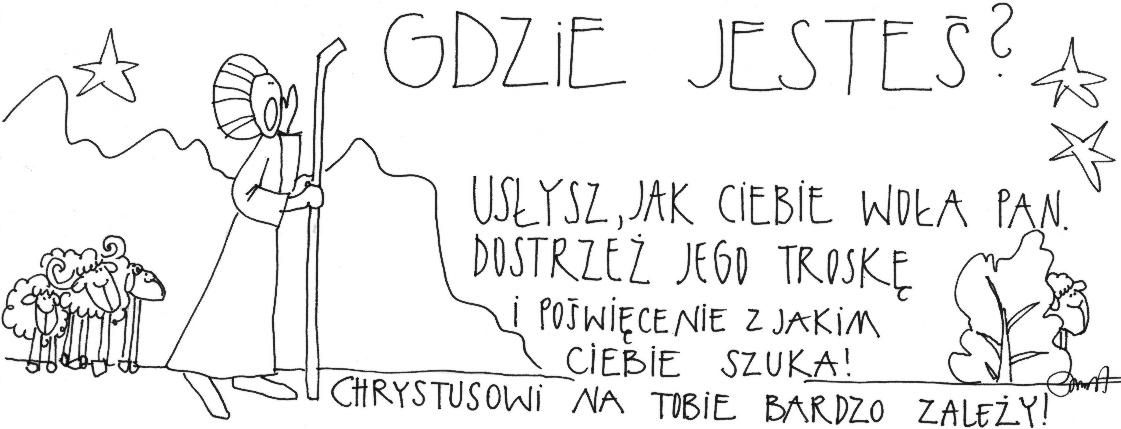 GDZIE JESTEŚ?
USŁYSZ, JAK CIEBIE WOŁA PAN.
DOSTRZEŻ JEGO TROSKĘ
I POŚWIĘCENIE Z JAKIM
CIEBIE SZUKA!
CHRYSTUSOWI NA TOBIE BARDZO ZALEŻY!